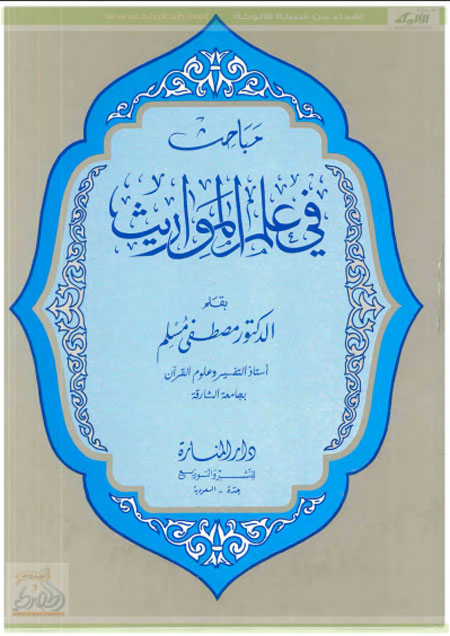 إهداء من شبكة الألوكة
www.alukah.net
الألوكة
مباحث
في علم المواريث
بقلم
الدكتور مصطفى مسلم
أستاذ التفسير وعلوم القرآن
بجامعة الشارقة
دار المنارة
للنشر والتوزيع
جدة - السعودية